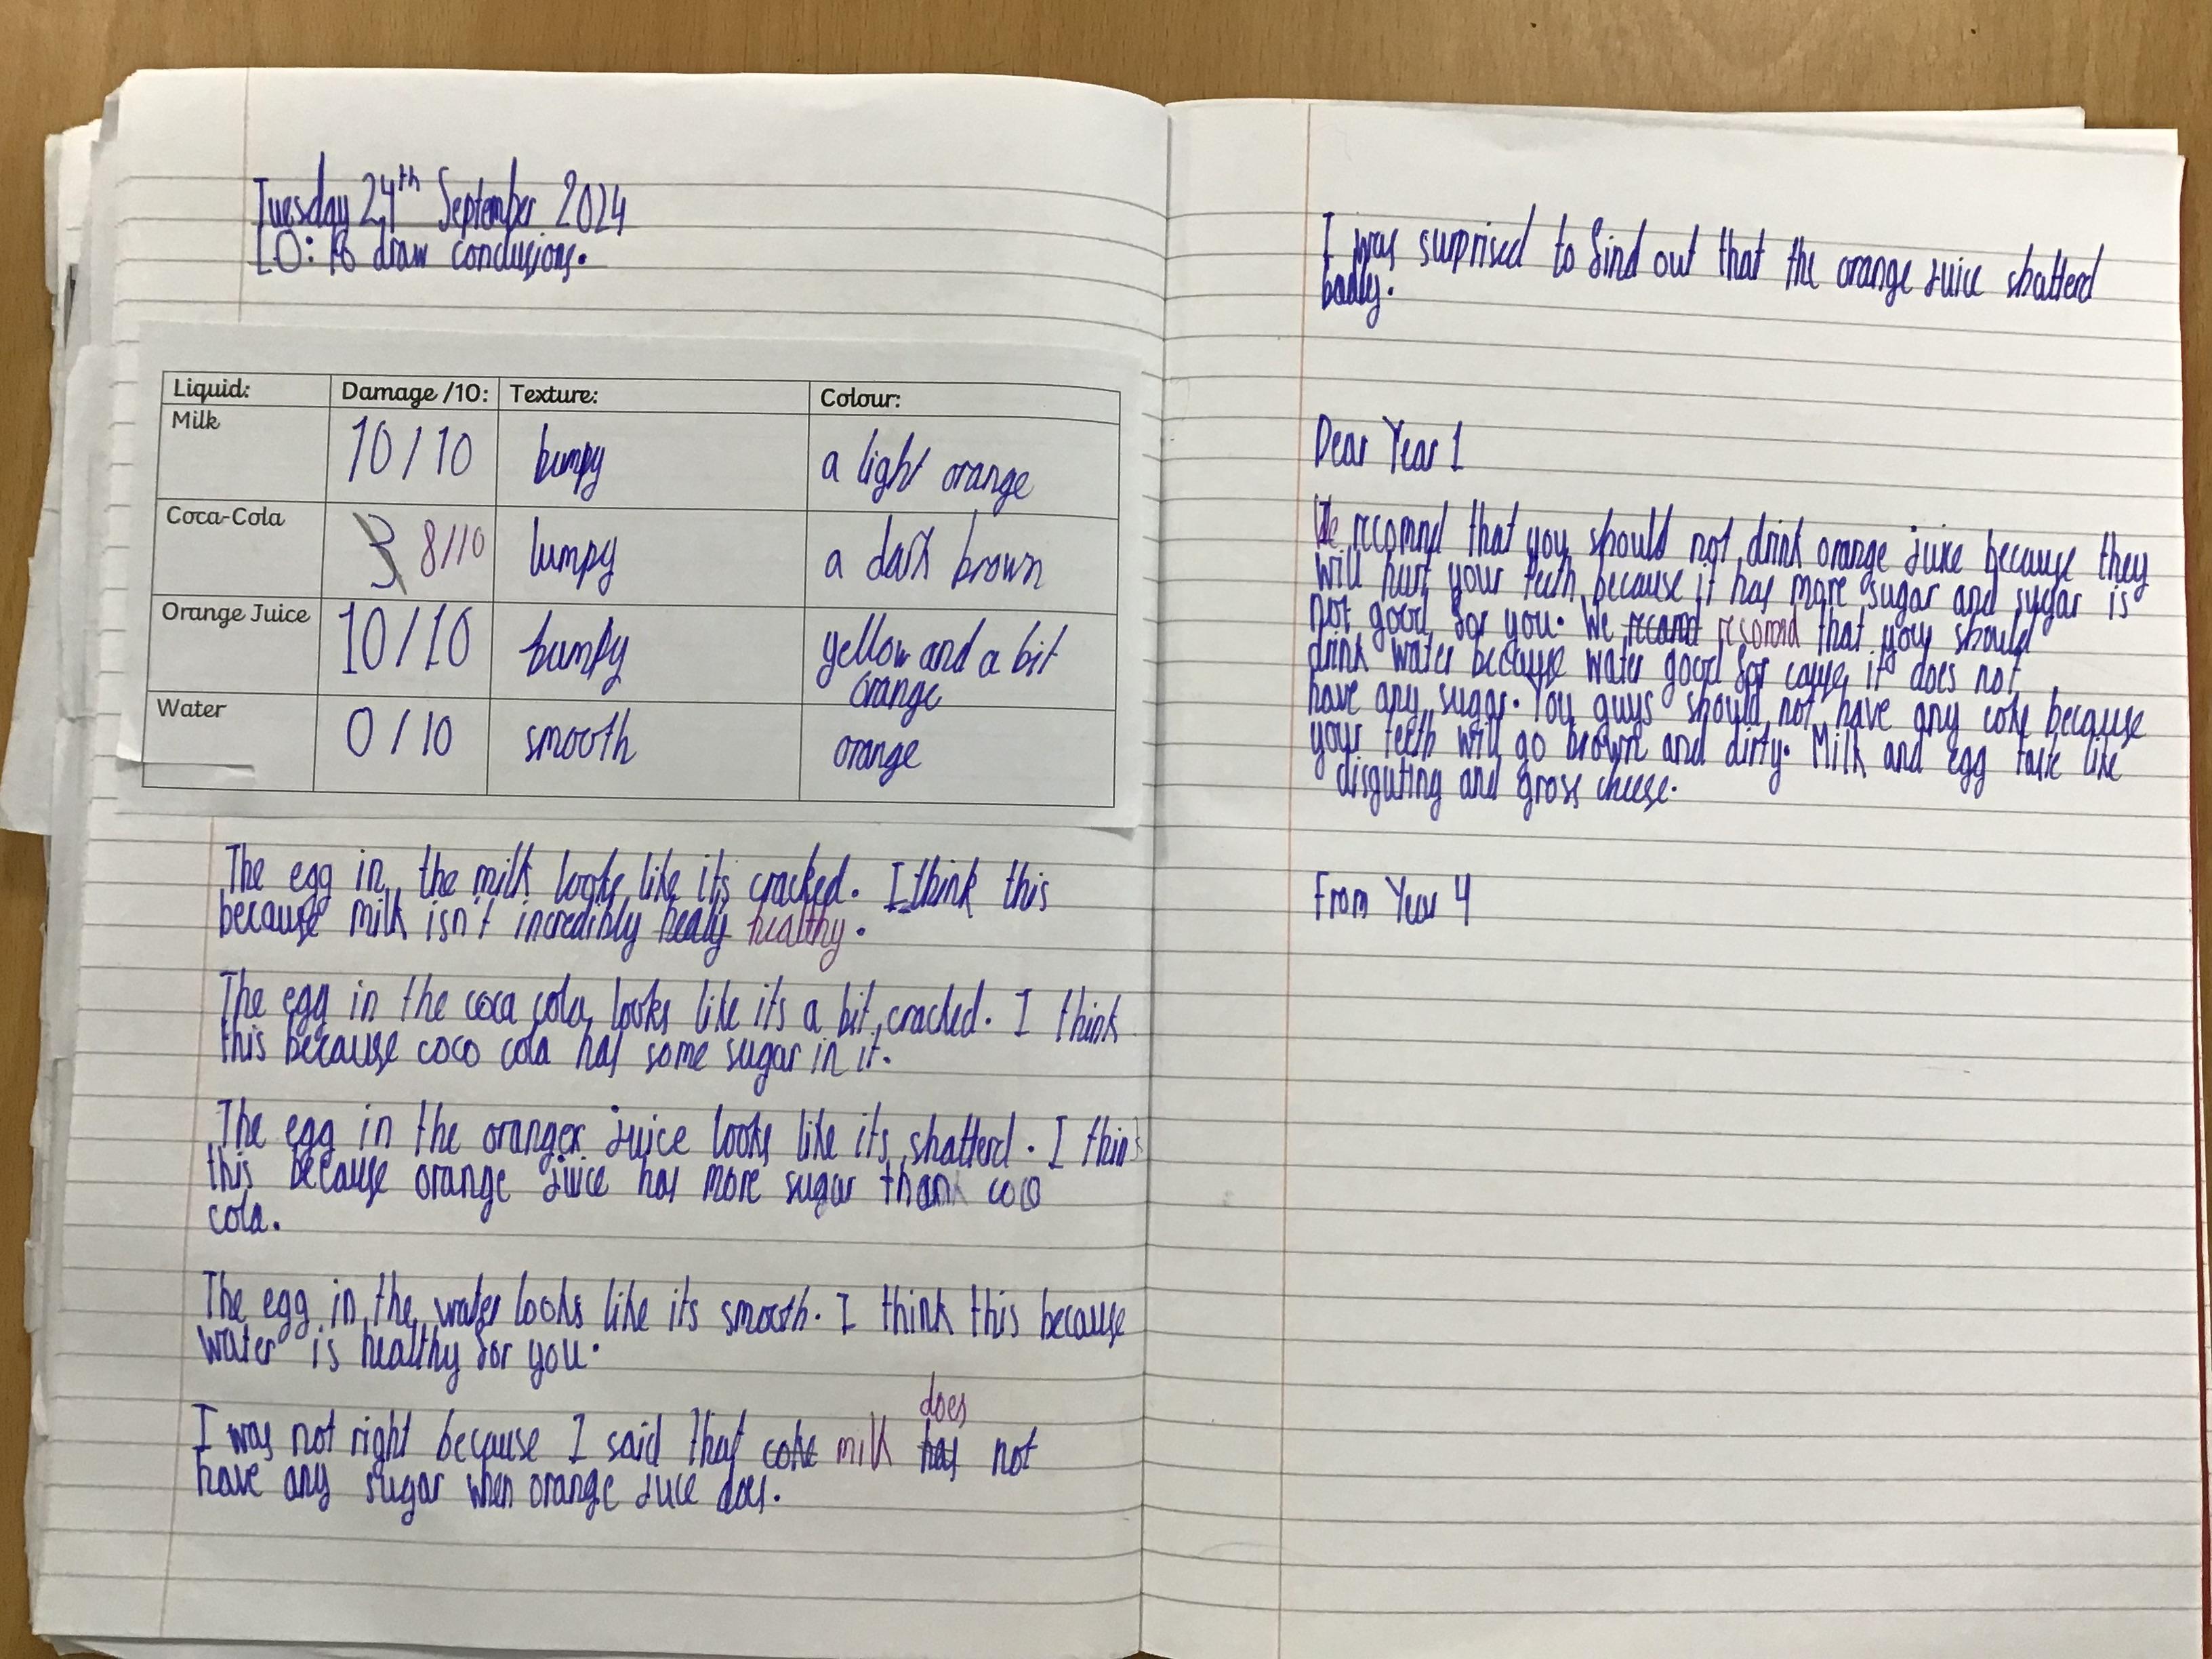 Tuesday 24th September 2024
LO: To draw conclusions.
Liquid: Damage /10: Texture: Colour:
Milk 10/10 bumpy a light orange
Coca-Cola 3 8/10 lumpy a dark brown
Orange Juice 10/10 bumpy yellow and a bit orange
Water 0/10 smooth orange
The egg in the milk looks like its cracked. I think this
because milk isn't incredibly healy healthy.
The egg in the coca cola looks like its a bit cracked. I think
this because coco cola has some sugar in it.
The egg in the oranger juice looks like its shatterd. I think
this because orange juice has more sugar than coco
cola.
The egg in the water looks like its smooth. I think this because
water is healthy for you.
does
I was not right because I said that coke milk has not
have any sugar when orange juce does.
I was surprised to find out that the orange juice shatterd
badly.
Dear Year 1
We recomnd that you should not drink orange juice because they
will hurt your teeth because it has more sugar and sugar is
not good for you. We that you should
drink water because water good for it does not
have any sugar. You guys should not have any coke because
your teeth will go brown and dirty. Milk and egg like
disguting and gross cheese.
From Year 4